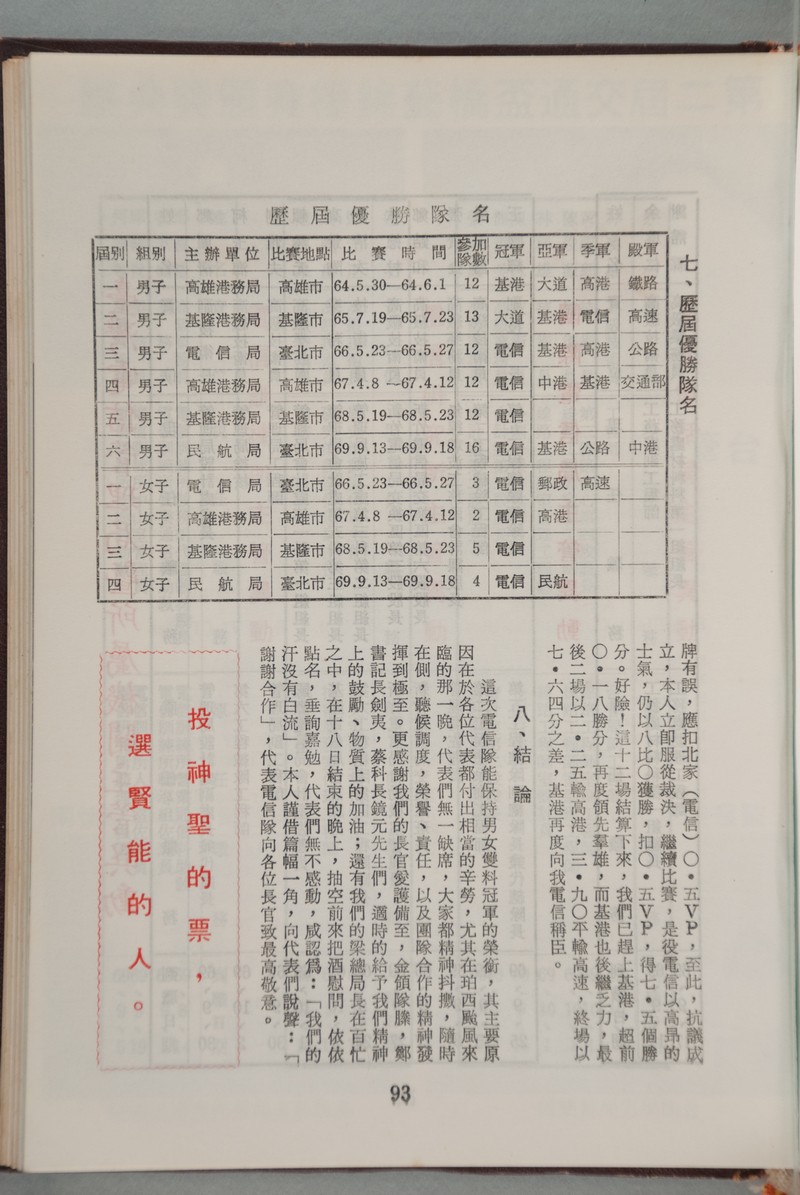 七、歷屆優勝隊名
歷屆優勝隊名
屆別 組別 主辦單位 比賽地點 比賽時間 參加隊數 冠軍 亞軍 季軍 殿軍
一 男子 高雄港務局 高雄市 64.5.30—64.6.1 12 基港 大道 高港 鐵路
二 男子 基隆港務局 基隆市 65.7.19—65.7.23 13 大道 基港 電信 高速
三 男子 電信局 臺北市 66.5.23—66.5.27 12 電信 基港 高港 公路
四 男子 高雄港務局 高雄市 67.4.8—67.4.12 12 電信 中港 基港 交通部
五 男子 基隆港務局 基隆市 68.5.19—68.5.23 12 電信
六 男子 民航局 臺北市 69.9.13—69.9.18 16 電信 基港 公路 中港
一 女子 電信局 臺北市 66.5.23—66.5.27 3 電信 郵政 高速
二 女子 高雄港務局 高雄市 67.4.8—67.4.12 2 電信 高港
三 女子 基隆港務局 基隆市 68.5.19—68.5.23 5 電信
四 女子 民航局 臺北市 69.9.13—69.9.18 4 電信 民航
牌有誤，應扣北家（電信）〇•五ＶＰ，至此，抗議成
立，本人立卽服從裁決，繼續比賽，是役電信以高昂的
士氣，仍以八比〇獲勝，扣〇•五ＶＰ，得七•五個勝
分。好險！這十二場結算下來，我們已趕上基港，超前
〇•一八勝分，再度領先羣雄，而基港也後繼乏力，最
後二場以二•二五輸高港，三•九〇平輸高速，終場以
七•六四分之差，基港再度向我電信稱臣。
八、結論
這次電信隊能保持男女雙料冠軍的榮銜，其主要原
因在於各位代表都付出相當的辛勞，尤其在珀西颱風來
臨的那一晚，代表們無一缺席，大家都精神抖擻，隨時
在側，聽候調度，榮譽、責任，以及團隊合作的精神發
揮到極至。更感謝我們的長官愛護備至，金領隊牒，鄭
書記長劍夷，蔡科長鏡元先生們，適時的給予我們精神
上的鼓勵、物質上的加油；還有我們的梁總局長在百忙
之中，在十八日結束的晚上，抽空前來把酒慰問，依依
點名，垂詢嘉勉，代表們無不感動，咸認爲：「我們的
汗沒有白流」。本人謹借篇幅一角，向代表們說聲：「
謝謝合作」，代表電信隊向各位長官致最高敬意。
投神聖的票，
選賢能的人。
93